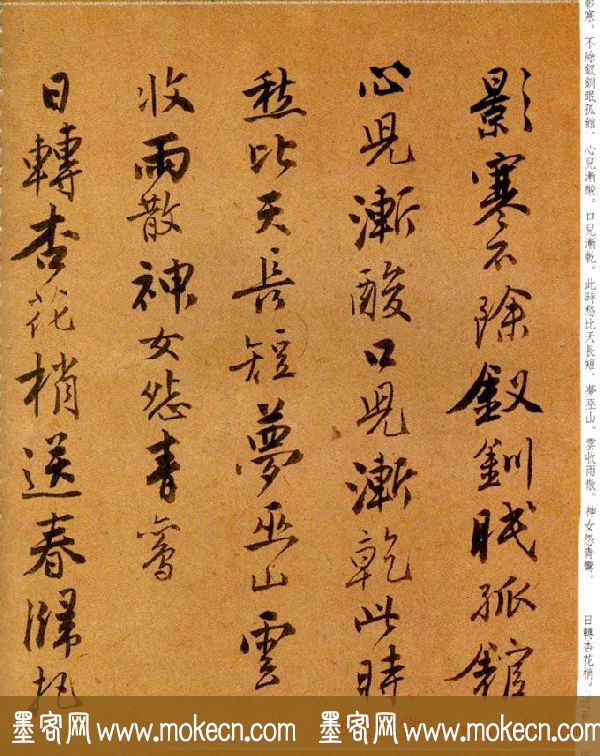 影寒不除釵釧眠孤館
心兒漸酸口兒漸乾此時
愁比天長短夢巫山雲
收雨散神女怨青鸞
日轉杏花梢送春歸
影寒。不除釵釧眠孤館。心兒漸酸。口兒漸乾。此時愁比天長短。夢巫山。雲收雨散。神女怨青鸞。
日轉杏花梢。
墨客网 www.mokecn.com 墨客网 www.mokecn.com